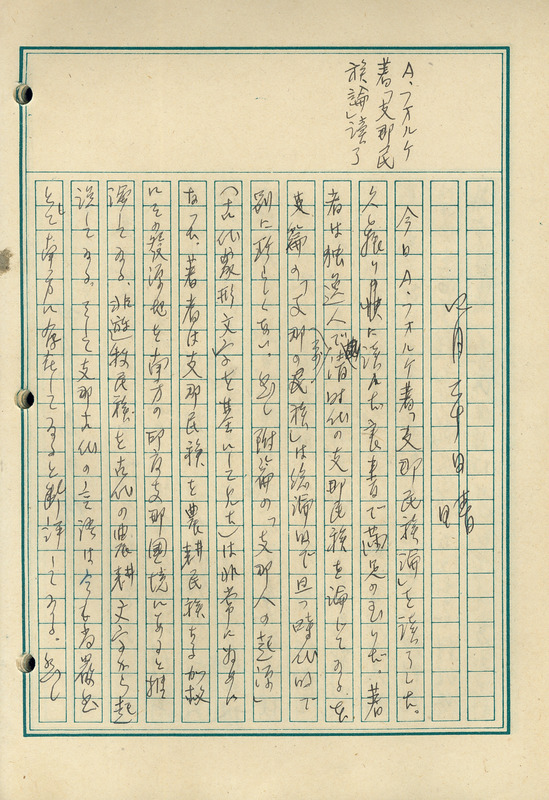 A・フォルケ
著「支那民
族論」読了
四月二十日 晴
今日A・フォルケ著「支那民族論」を読了した。
久し振り愉快に読んだ良書で満足の至りだ。著
者は独逸人で清時代の支那民族を論じてゐるだ
英篇の「支那の民族」は総論的で且つ時代的で
別に珍らしくない。然し附篇の「支那人の起源」
(古代象形文字を基いて見た)は非常に
なった。著者は支那民族を農耕民族なるが故
にその発源地を南方の印度支那国境にあると推
濘してゐる。非遊牧民族を古代の農耕文字から起
説してゐる。そして支那古代の言語は今も尚厳
として南方に存在してゐると断評してゐる。然し